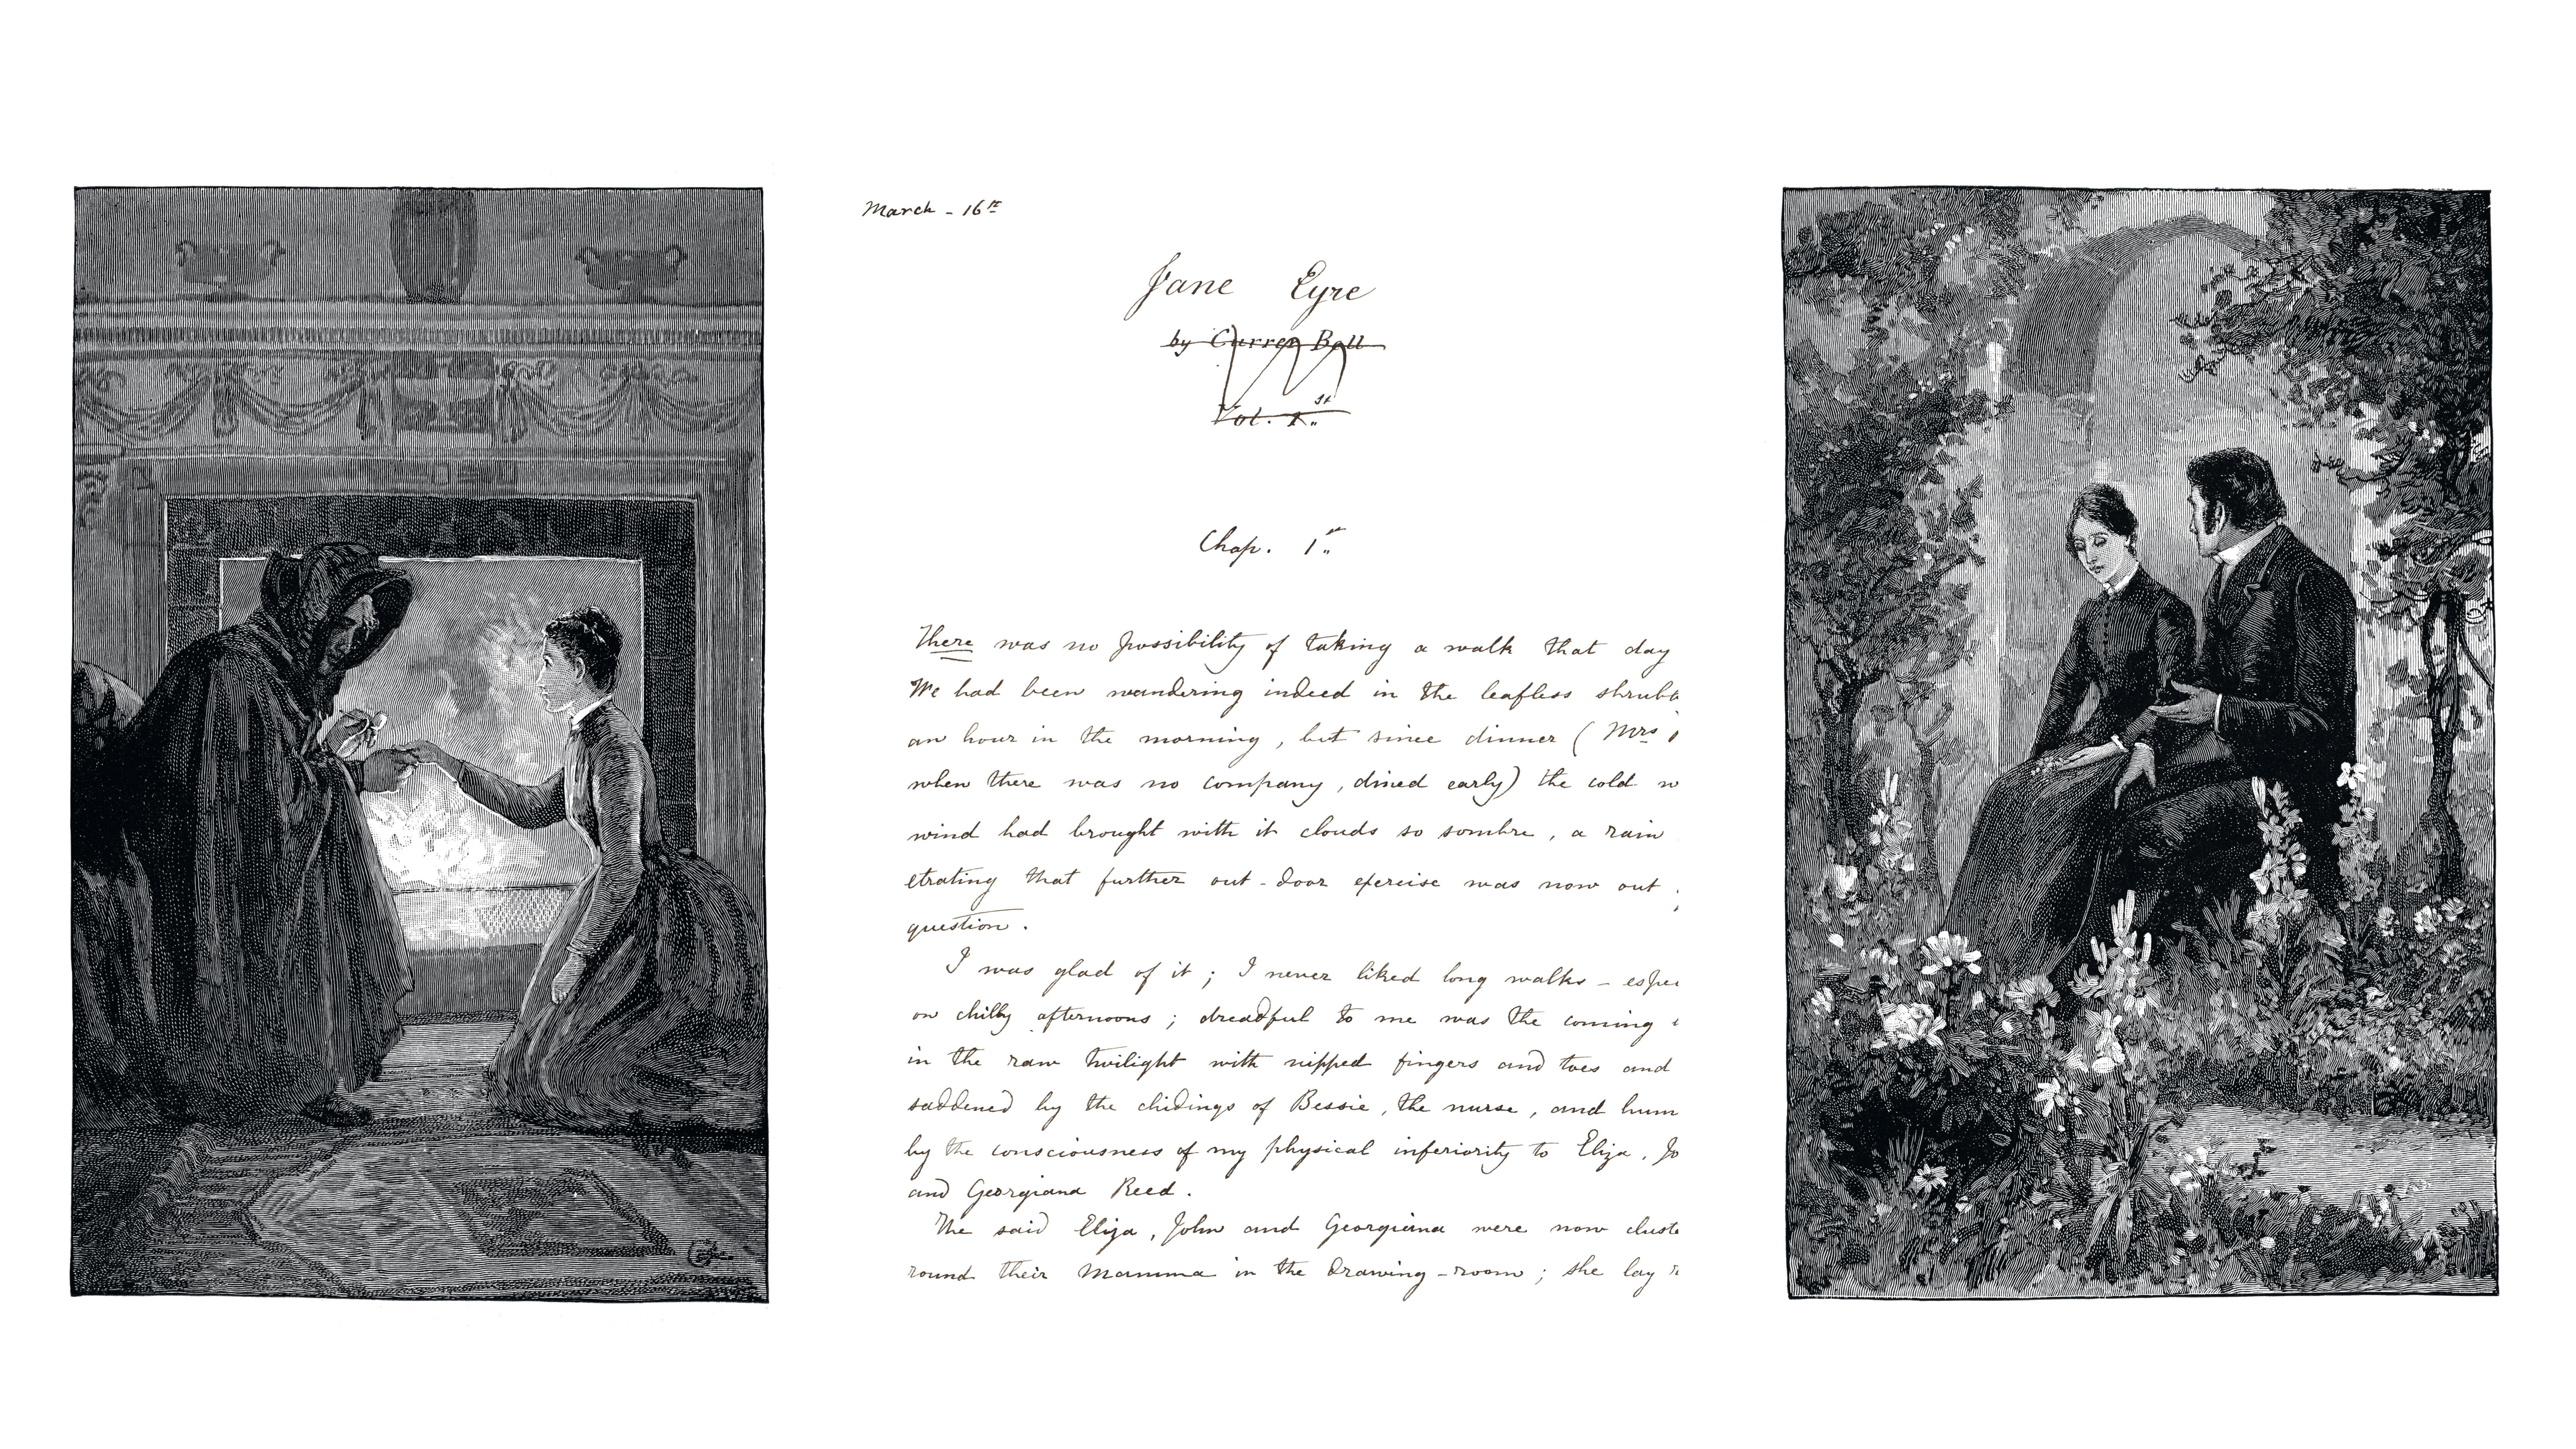 March - 16th
Jane Eyre
by Currer Bell
Vol. 1.st
Chap. 1.st
There was no possibility of taking a walk that day
We had been wandering indeed in the leafless shrubb
an hour in the morning, but since dinner (Mrs
when there was no company, dined early) the cold w
wind had brought with it clouds so sombre, a rain
etrating that further out-door exercise was now out
question.
I was glad of it; I never liked long walks - espec
on chilly afternoons; dreadful to me was the coming
in the raw twilight with nipped fingers and toes and
saddened by the chidings of Bessie, the nurse, and hum
by the consciousness of my physical inferiority to Eliza, Jo
and Georgiana Reed.
The said Eliza, John and Georgiana were now cluste
round their Mamma in the drawing-room; she lay r